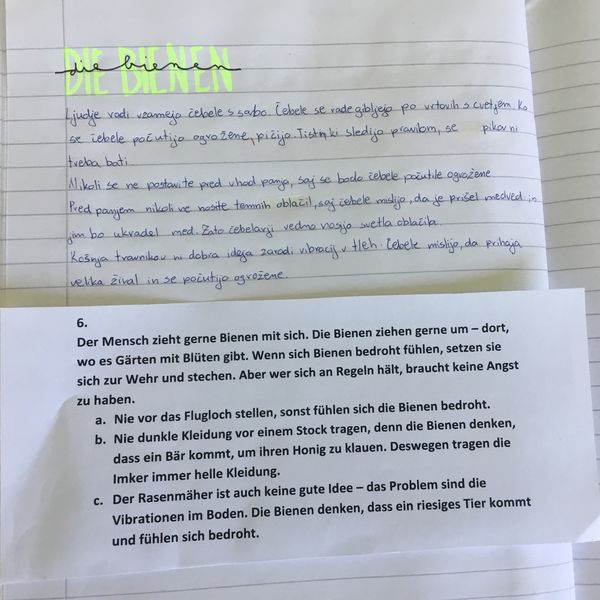 DIE BIENEN
die bienen
Ljudje radi vzamejo čebele s sabo. Čebele se rade gibljejo po vrtovih s cvetjem. Ko
se čebele počutijo ogrožene, pičijo. Tistim, ki sledijo pravilom, se pikov ni
treba bati.
Nikoli se ne postavite pred vhod panja, saj se bodo čebele počutile ogrožene.
Pred panjem nikoli ne nosite temnih oblačil, saj čebele mislijo, da je prišel medved in
jim bo ukradel med. Zato čebelarji vedno nosijo svetla oblačila.
Košnja travnikov ni dobra ideja zaradi vibracij v tleh. Čebele mislijo, da prihaja
velika žival in se počutijo ogrožene.
6.
Der Mensch zieht gerne Bienen mit sich. Die Bienen ziehen gerne um – dort,
wo es Gärten mit Blüten gibt. Wenn sich Bienen bedroht fühlen, setzen sie
sich zur Wehr und stechen. Aber wer sich an Regeln hält, braucht keine Angst
zu haben.
a. Nie vor das Flugloch stellen, sonst fühlen sich die Bienen bedroht.
b. Nie dunkle Kleidung vor einem Stock tragen, denn die Bienen denken,
dass ein Bär kommt, um ihren Honig zu klauen. Deswegen tragen die
Imker immer helle Kleidung.
c. Der Rasenmäher ist auch keine gute Idee – das Problem sind die
Vibrationen im Boden. Die Bienen denken, dass ein riesiges Tier kommt
und fühlen sich bedroht.